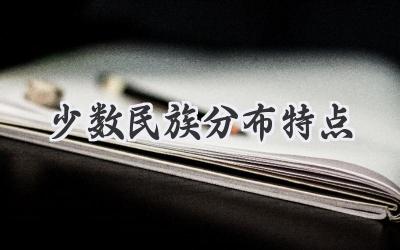 少数民族分布特点